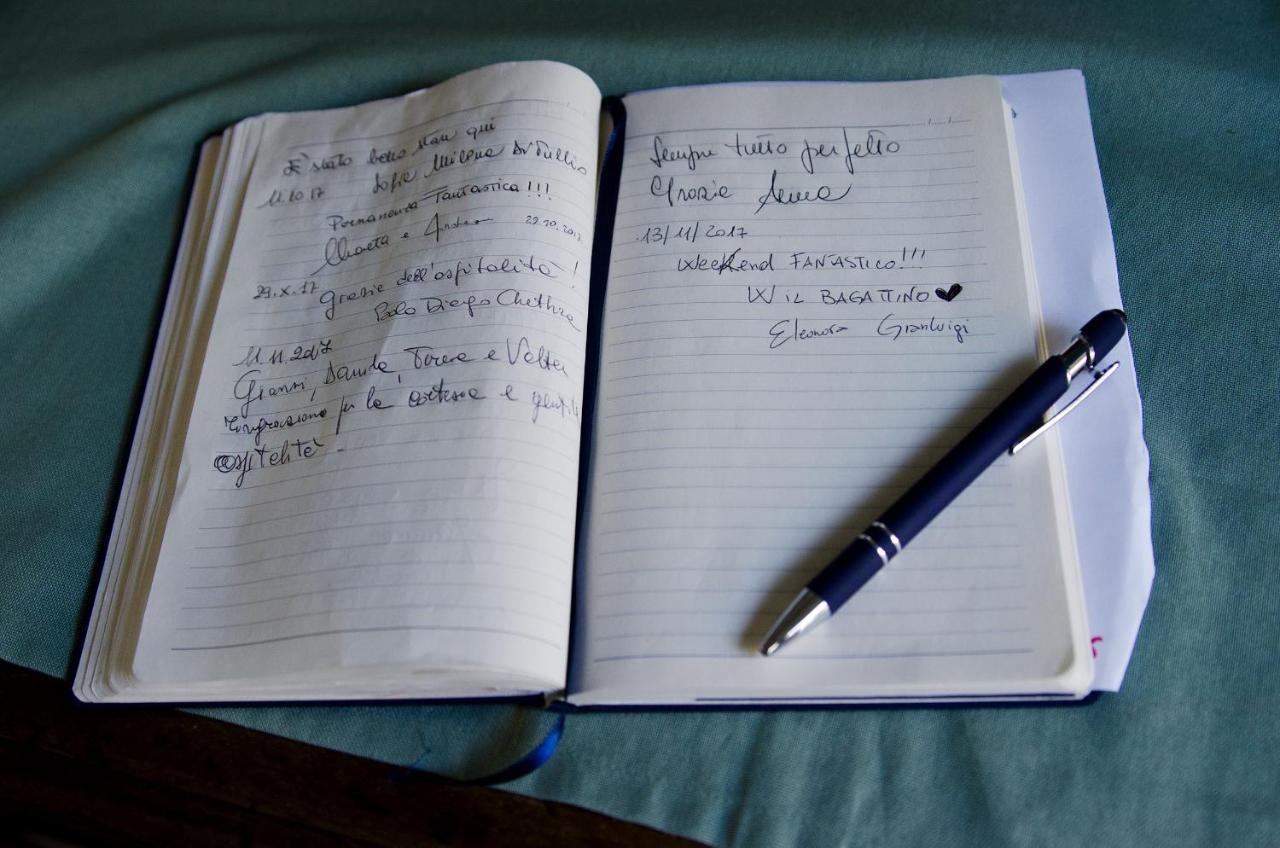 È stato bello stare qui
11.10.17 Sofia Milena Di Tullio
Permanenza Fantastica!!!
e Andrea 29.10.2017
29.X.17 grazie dell'ospitalità!
Paolo Diego
11.11.2017
Gianni, Davide, e Valter
ringraziano per la cortese e gentile
ospitalità.
Sempre tutto perfetto
Grazie Anna
13/11/2017
Weekend FANTASTICO!!!
W IL BAGATTINO ♥
Eleonora Gianluigi